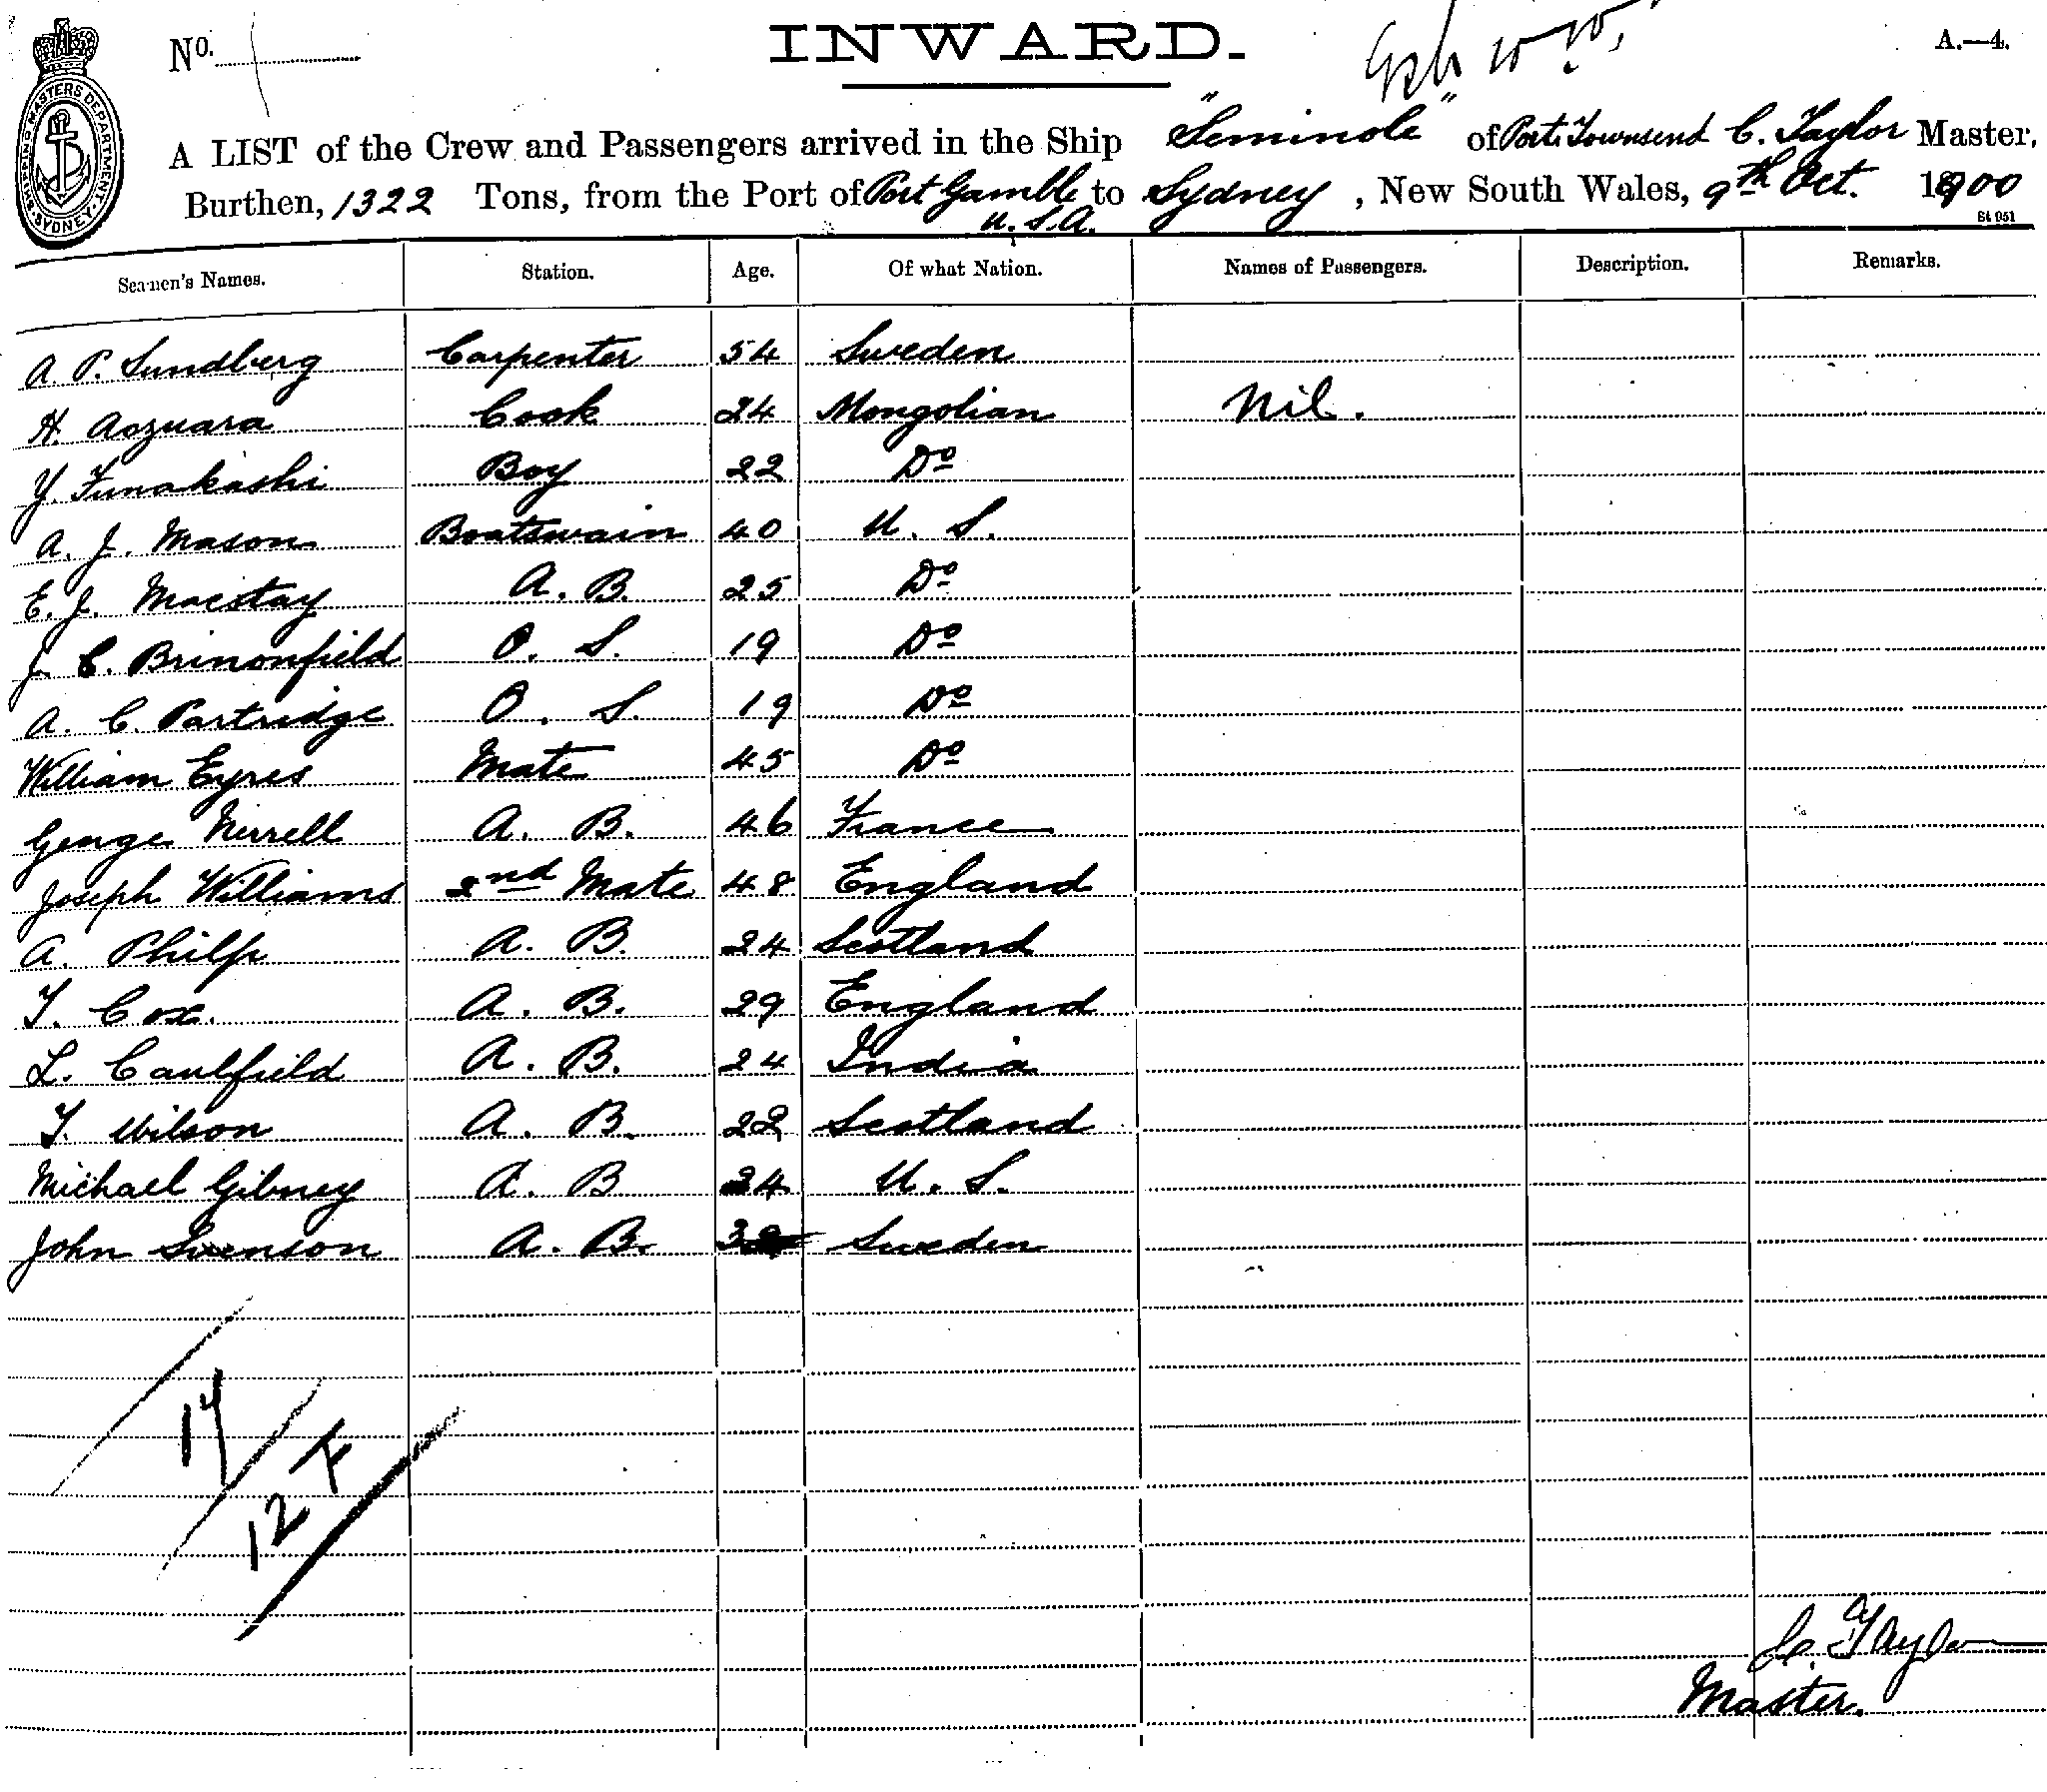 No. INWARD. A.—4.
A LIST of the Crew and Passengers arrived in the Ship "Seminole" of Port Townsend C. Taylor Master,
Burthen, 1322 Tons, from the Port of Port Gamble to Sydney, New South Wales, 9th Oct. 1900
U.S.A. 8t 951
SHIPPING MASTERS DEPARTMENT SYDNEY
Seamen's Names. Station. Age. Of what Nation. Names of Passengers. Description. Remarks.
A P. Sundberg Carpenter 54 Sweden
H. Aozuara Cook 24 Mongolian Nil.
Y. Funakashi Boy 22 Do
A. J. Mason Boatswain 40 U. S.
E. J. Macstay A. B. 25 Do
J. C. Brinonfield O. S. 19 Do
A. C. Partridge O. S. 19 Do
William Eyres Mate 45 Do
George Nerrell A. B. 46 France
Joseph Williams 2nd Mate 48 England
A. Philp A. B. 24 Scotland
T. Cox. A. B. 29 England
L. Caulfield A. B. 24 India
T. Wilson A. B. 22 Scotland
Michael Gibney A. B 24 U. S.
John Svenson A. B. Sweden
17
12 F
C. Taylor
Master.